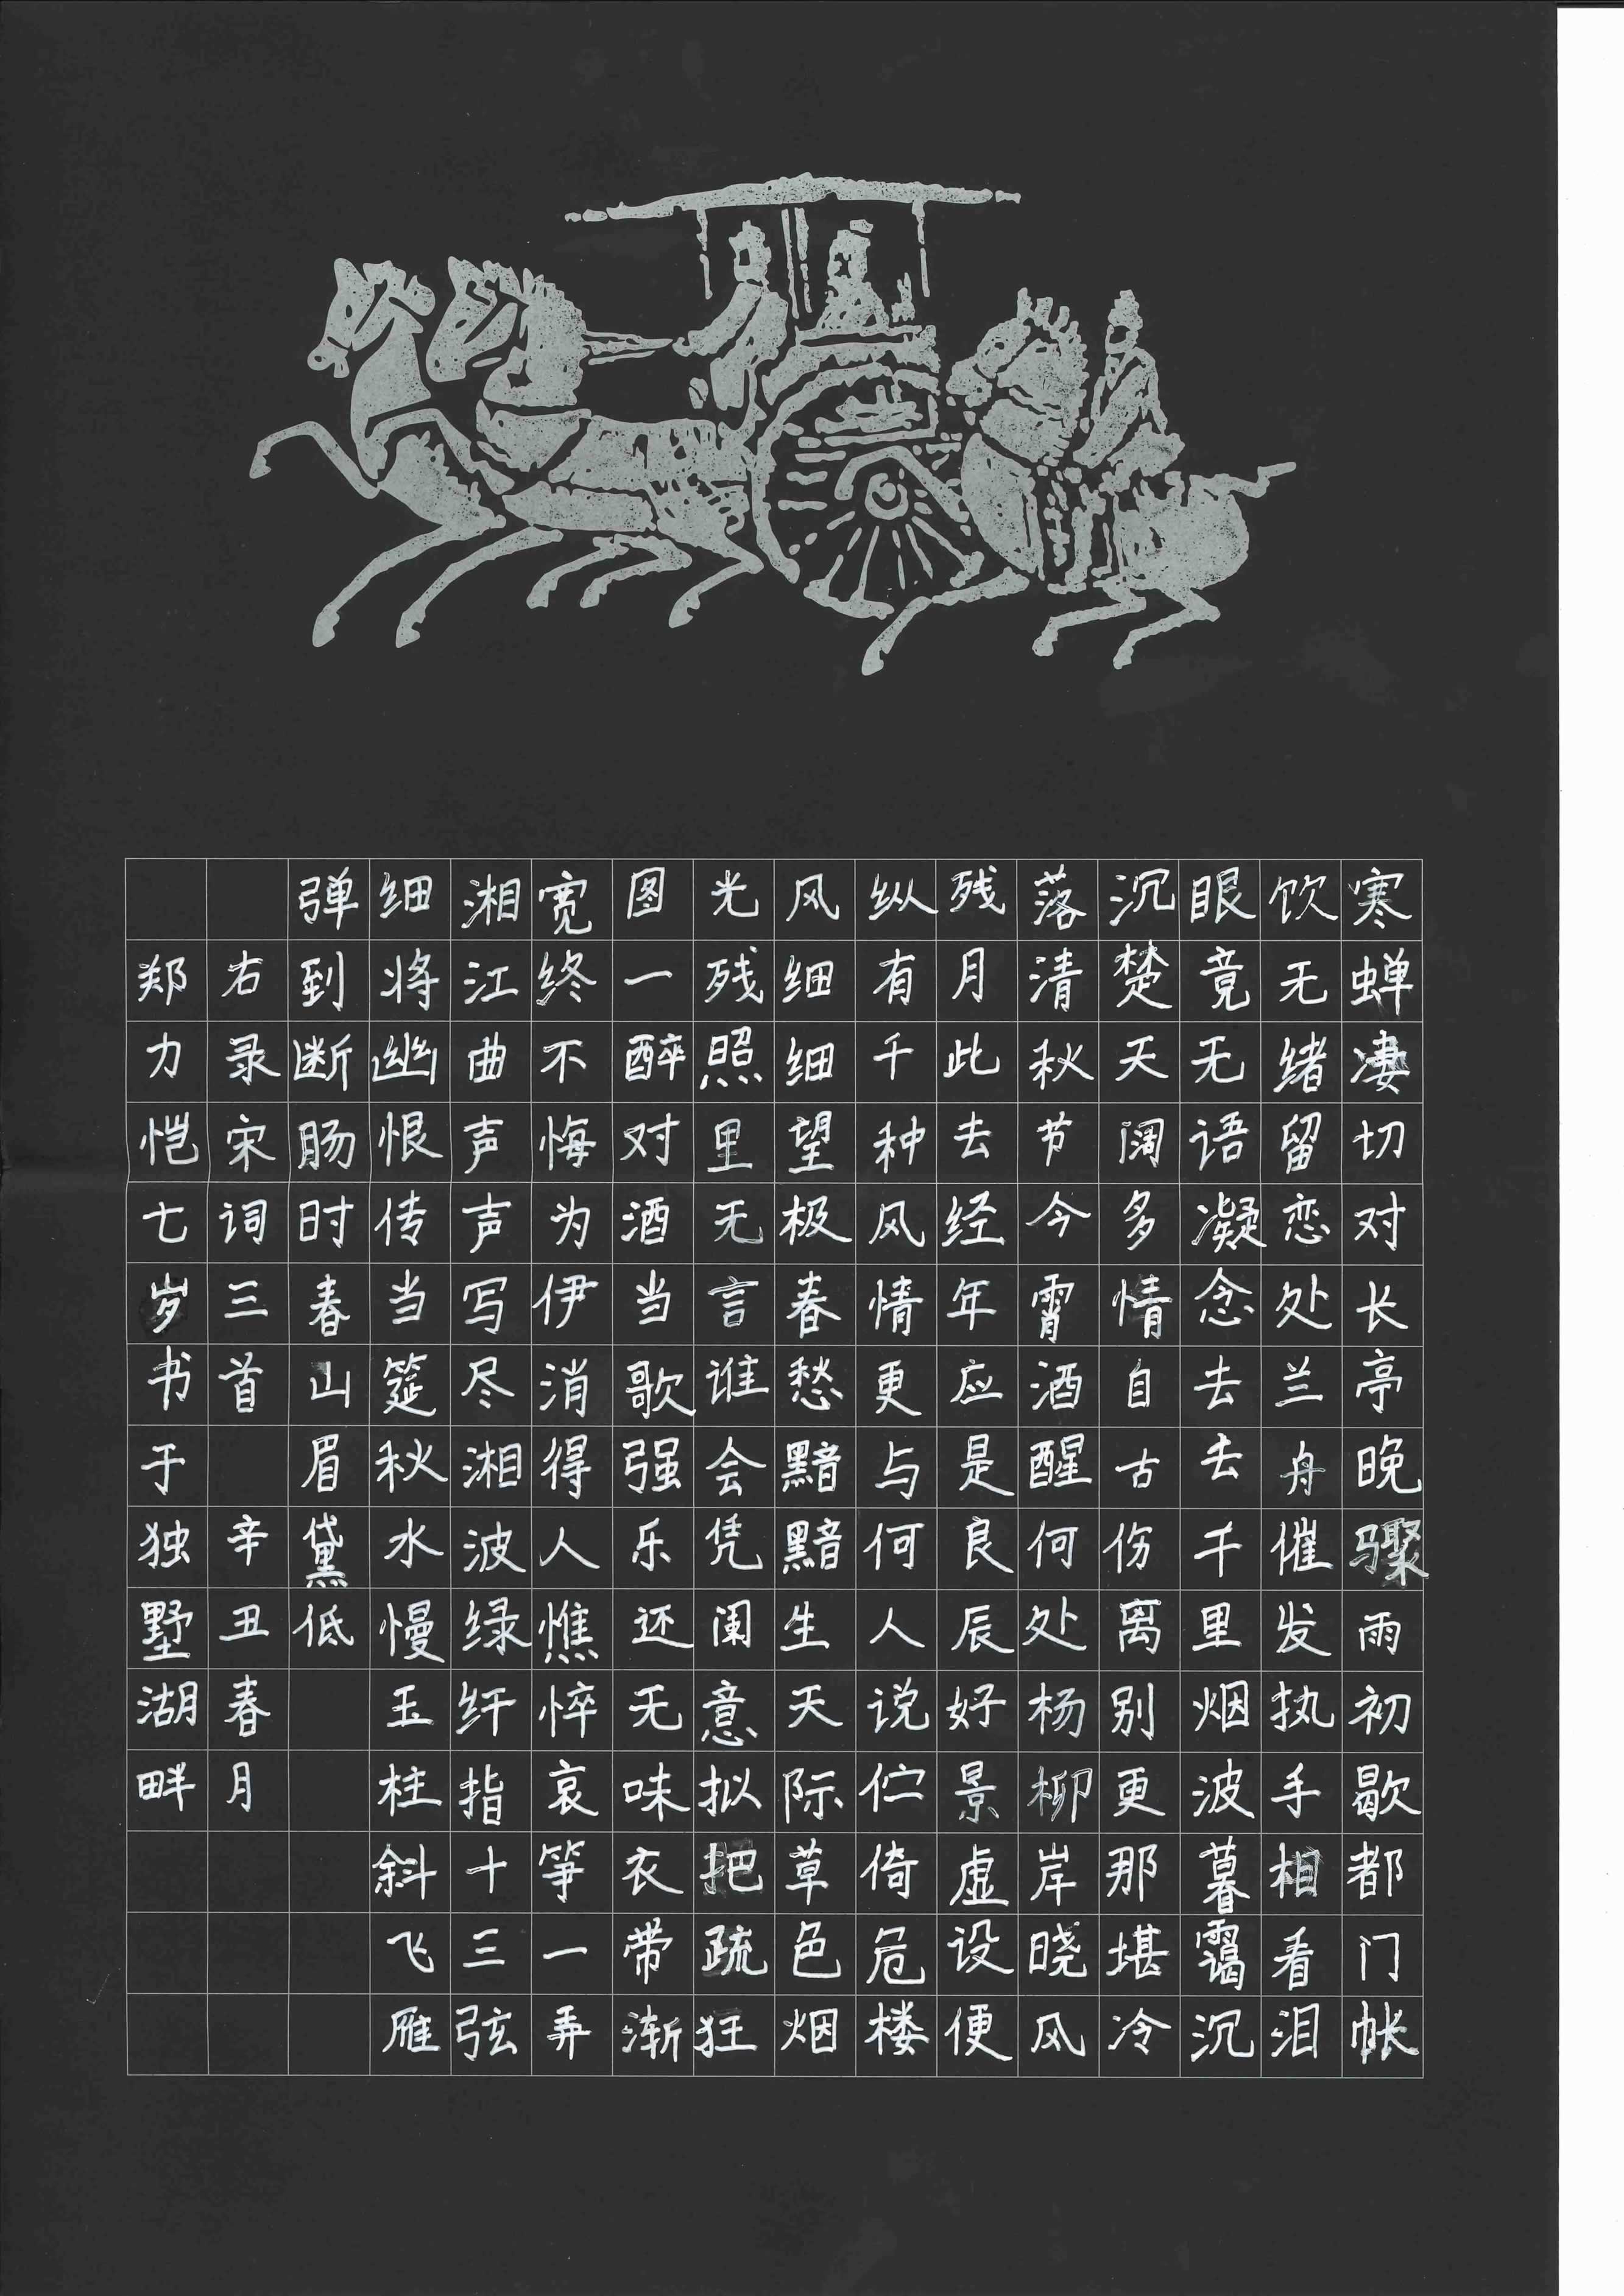 寒蝉凄切对长亭晚骤雨初歇都门帐
饮无绪留恋处兰舟催发执手相看泪
眼竟无语凝念去去千里烟波暮霭沉
沉楚天阔多情自古伤离别更那堪冷
落清秋节今霄酒醒何处杨柳岸晓风
残月此去经年应是良辰好景虚设便
纵有千种风情更与何人说伫倚危楼
风细细望极春愁黯黯生天际草色烟
光残照里无言谁会凭阑意拟把疏狂
图一醉对酒当歌强乐还无味衣带渐
宽终不悔为伊消得人憔悴哀筝一弄
湘江曲声声写尽湘波绿纤指十三弦
细将幽恨传当筵秋水慢玉柱斜飞雁
弹到断肠时春山眉黛低
右录宋词三首 辛丑春月
郑力恺七岁书于独墅湖畔